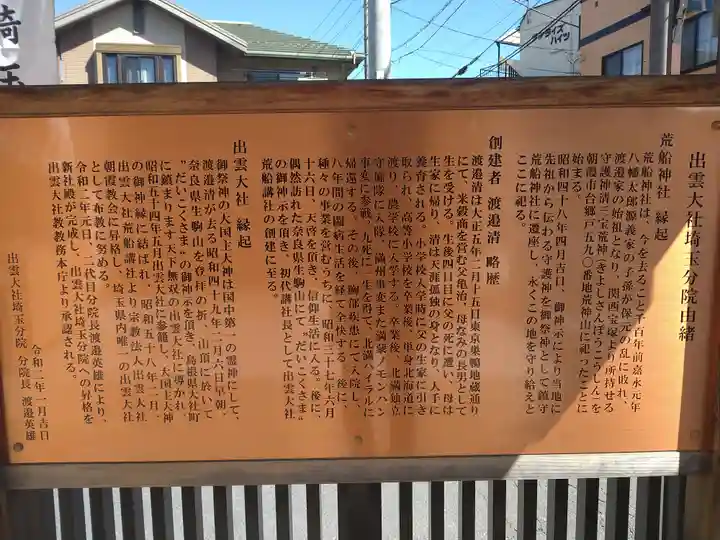 出雲大社埼玉分院由緒
荒船神社 縁起
荒船神社は、今を去ること八百年前嘉永元年
八幡太郎源義家の子孫が保元の乱に敗れ、
渡邉家の始祖となり、関西宝塚より所持せる
守護神清三宝荒神(きよしさんぽうこうしん)を
朝霞市台郷戸五九〇番地荒神山に祀ったことに
始まる。
昭和四十八年四月吉日、御神示により当地に
先祖から伝わる守護神を御祭神として鎮守
荒船神社に遷座し、永くこの地を守り給えと
ここに祀る。
創建者 渡邉清 略歴
渡邉清は大正五年二月十五日東京巣鴨地蔵通り
にて、米穀商を営む父亀治、母なみの長男として
生を受ける。生後四日で父の死に遭い、母は
生家に帰り、清は天涯孤独の身となり、人手に
養育される。小学校入学時に父の生家に引き
取られ、高等小学校を卒業後、単身北海道に
渡り、農学校に入学する。卒業後、北満独立
守備隊に入隊。満州事変また満蒙ノモンハン
事変に参戦、九死に一生を得て、北満ハイラルに
帰還する。その後、胸部疾患にて入院し、
八年間の闘病生活を経て全快する。後に、
種々の事業を営むうちに、昭和三十七年六月
十六日、天啓を頂き、信仰生活に入る。後に、
偶然訪れた奈良県生駒山にて〝だいこくさま〟
の御神示を頂き、初代講社長として出雲大社
荒船講社の創建に至る。
出雲大社 縁起
御祭神の大国主大神は国中第一の霊神にして、
渡邉清が去る昭和四十九年二月六日早朝、
奈良県生駒山を登拝の折、山頂に於いて
〝だいこくさま〟の御神示を頂き、島根県大社町
に鎮まります天下無双の出雲大社に導かれ、
昭和五十四年五月出雲大社に参籠し、大国主大神
の御神縁に結ばれ、昭和五十八年一月、
出雲大社荒船講社より宗教法人出雲大社
朝霞教会に昇格し、埼玉県内唯一の出雲大社
として布教に努める。
令和二年元日、二代目分院長渡邉英雄により、
新社殿が完成し、出雲大社埼玉分院への昇格を
出雲大社教教務本庁より承認される。
令和二年一月吉日
出雲大社埼玉分院 分院長 渡邉英雄
サンライズハイツ
埼玉